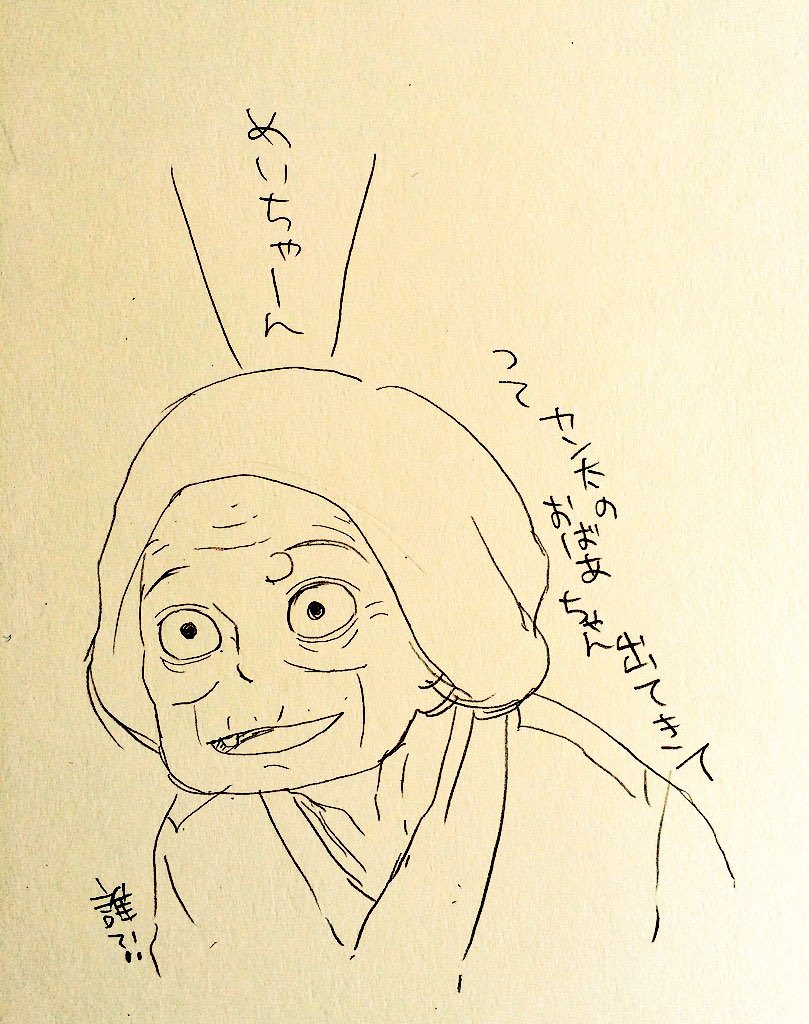 めいちゃーん
って
カン太の
おばあ
ちゃん
出てきて